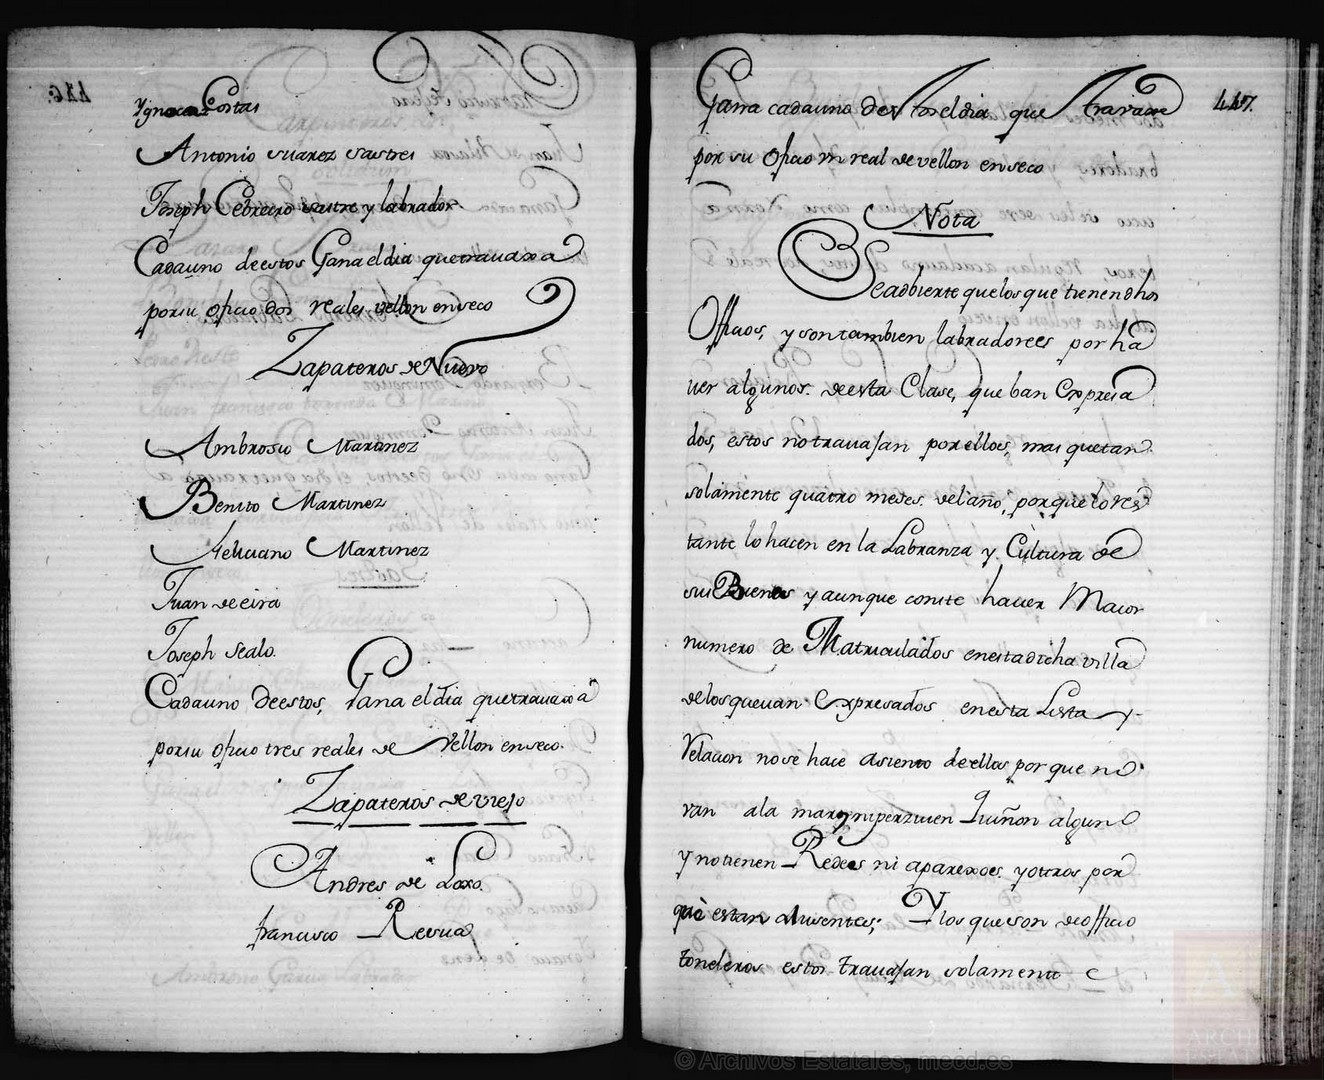 Ygnacio Costas
Antonio suarez sastres
Joseph Cebreiro sastre y labrador
Cadauno deestos Ganaeldia quetravaxa a
porsu oficio dos reales vellon enseco
Zapateros de Nuevo
Ambrosio Martinez
Benito Martinez
feliciano Martinez
Juan de eira
Joseph Sealo.
Cadauno Deestos, Gana el dia quetravaxa â
porsu oficio tres reales de Vellon enseco.
Zapateros de viejo
Andres de Loxo.
francisco Resua
447.
Gana cadauno destos eldia que travaxare
por su oficio un real de vellon enseco
Nota
Seadbierte quelos que tienen dhos
Officios, y sontambien labradorees por ha
ver algunos. deesta Clase, que ban Expresa
dos, estos notravajan porellos, mas quetan
solamente quatro meses. del año, porque lo res
tante lo hacen en la Labranza y Cultura de
sus Buenes y aunque conste haver Maior
numero de Matriculados enestadicha villa
delosquevan Expresados enesta Lista y
Relacion nose hace asiento deellos por que no
van ala mar, niperziven Quiñon alguno
y notienen Redees ni aparexoes, yotros por
què estan Ausentes; Y los queson deofficio
toneleros estos travajan solamente